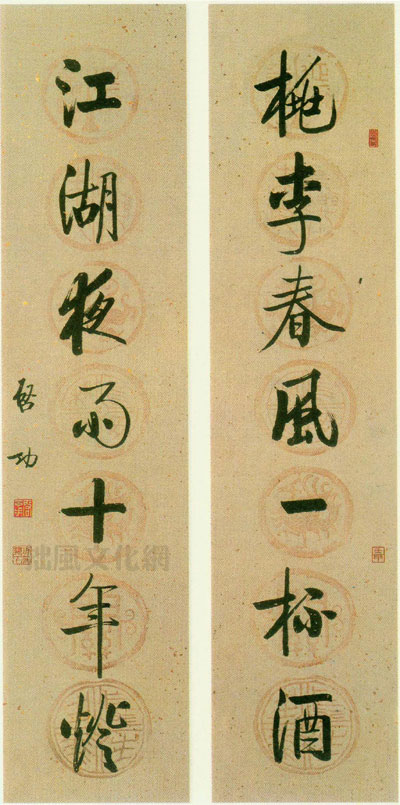 桃李春風一杯酒
江湖夜雨十年燈
啓功
拙風文化網